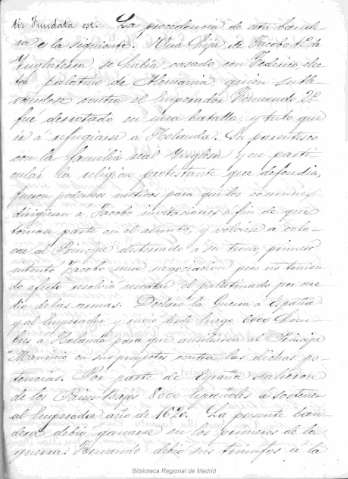 tis Fundata est. La procedencia de esta bande-
ra es la siguiente. Una hija de Jacobo 1º de
Inglaterra, se había casado con Federico elec-
tor palatino de Alemania quien suble-
vandose contra el Emperador Fernando 2º
fue derrotado en una batalla, y tubo que
ir á refugiarse á Holanda. Su parentesco
con la familia real Inglesa y en parti-
cular la religion protestante que defendia,
fueron motivos para que los comunes
dirigiesen a Jacobo invitaciones á fin de que
tomase parte en el asunto, y volviese á colo-
car al Principe destronado á su trono, primero
intentó Jacobo una negociacion pero no tenien-
do efecto el palatinado por me-
dio de las armas. Declaró la Guerra á España
y al Emperador y envió desde luego 6000 hom-
bres á Holanda para que ausiliasen al Principe
Mauricio en sus proyectos contra las dichas po-
tencias. Por parte de España salieron
de los Paises Bajos 8000 españoles á sostener
al Emperador año de 1620. La presente ban-
dera debió ganarse en los primeros de la
guerra. Fernando debió sus triunfos á la
Biblioteca Regional de Madrid